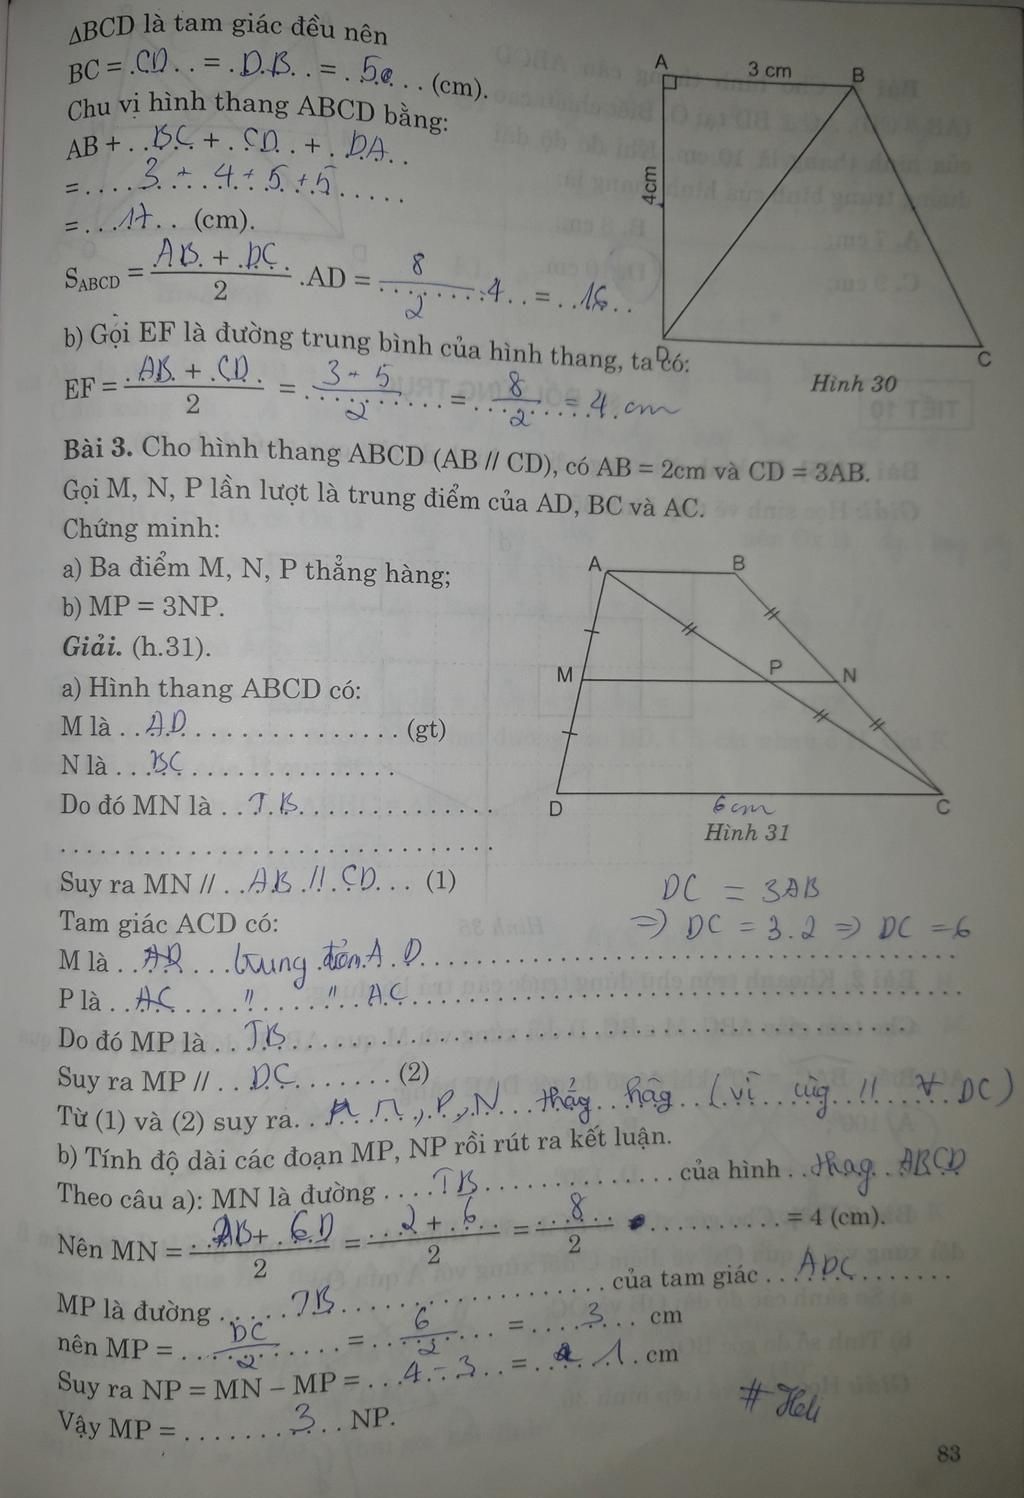 ΔBCD là tam giác đều nên
BC = .CD. . = .D.B. . = . 5. . . (cm).
Chu vi hình thang ABCD bằng:
AB + . .BC. + .CD. . + . DA. .
= . . . . 3 + 4 + 5 + 5 . . . . .
= . . . 17. . . (cm).
S_ABCD = (AB + DC)/2 .AD = 8/2 .4 . . = . . 16 . .
b) Gọi EF là đường trung bình của hình thang, ta có:
EF = (AB + CD)/2 = (3 + 5)/2 = 8/2 = 4 cm
A
3 cm
B
4cm
D
C
Hình 30
Bài 3. Cho hình thang ABCD (AB // CD), có AB = 2cm và CD = 3AB.
Gọi M, N, P lần lượt là trung điểm của AD, BC và AC.
Chứng minh:
a) Ba điểm M, N, P thẳng hàng;
b) MP = 3NP.
Giải. (h.31).
a) Hình thang ABCD có:
M là . . A.D. . . . . . . . . . . . . . . (gt)
N là . . . BC . . . . . . . . . . . . . .
Do đó MN là . . T.B. . . . . . . . . . . . . .
Suy ra MN // . . AB // CD. . . (1)
A
B
M
P
N
D
6 cm
C
Hình 31
DC = 3AB
=> DC = 3.2 => DC = 6
Tam giác ACD có:
M là . . . . . trung A.D. . . . . . . . . . . .
P là . . AC . . " . . . . " . AC. . . . . . . . . . . .
Do đó MP là . . TB. . . . . . . . . . . . . . .
Suy ra MP // . . DC. . . . . . . (2)
Từ (1) và (2) suy ra. . M, P, N. . thẳg hàg (vì cùg // DC)
b) Tính độ dài các đoạn MP, NP rồi rút ra kết luận.
Theo câu a): MN là đường . . . . TB. . . . . . . . . . . của hình . . thag. . ABCD
Nên MN = (AB + CD)/2 = (2 + 6)/2 = 8/2 . . . . . . . . . . = 4 (cm).
MP là đường . . . . . TB. . . . . . . . . . . . . . của tam giác . . . ADC. . . . . . .
nên MP = . . DC/2 . . . = . . 6/2 . . . = . . . . 3 . . . cm
Suy ra NP = MN – MP = . . . 4 - 3 . . = . . . 1 . cm
Vậy MP = . . . . . . . . 3. . . NP.
# Heli
83